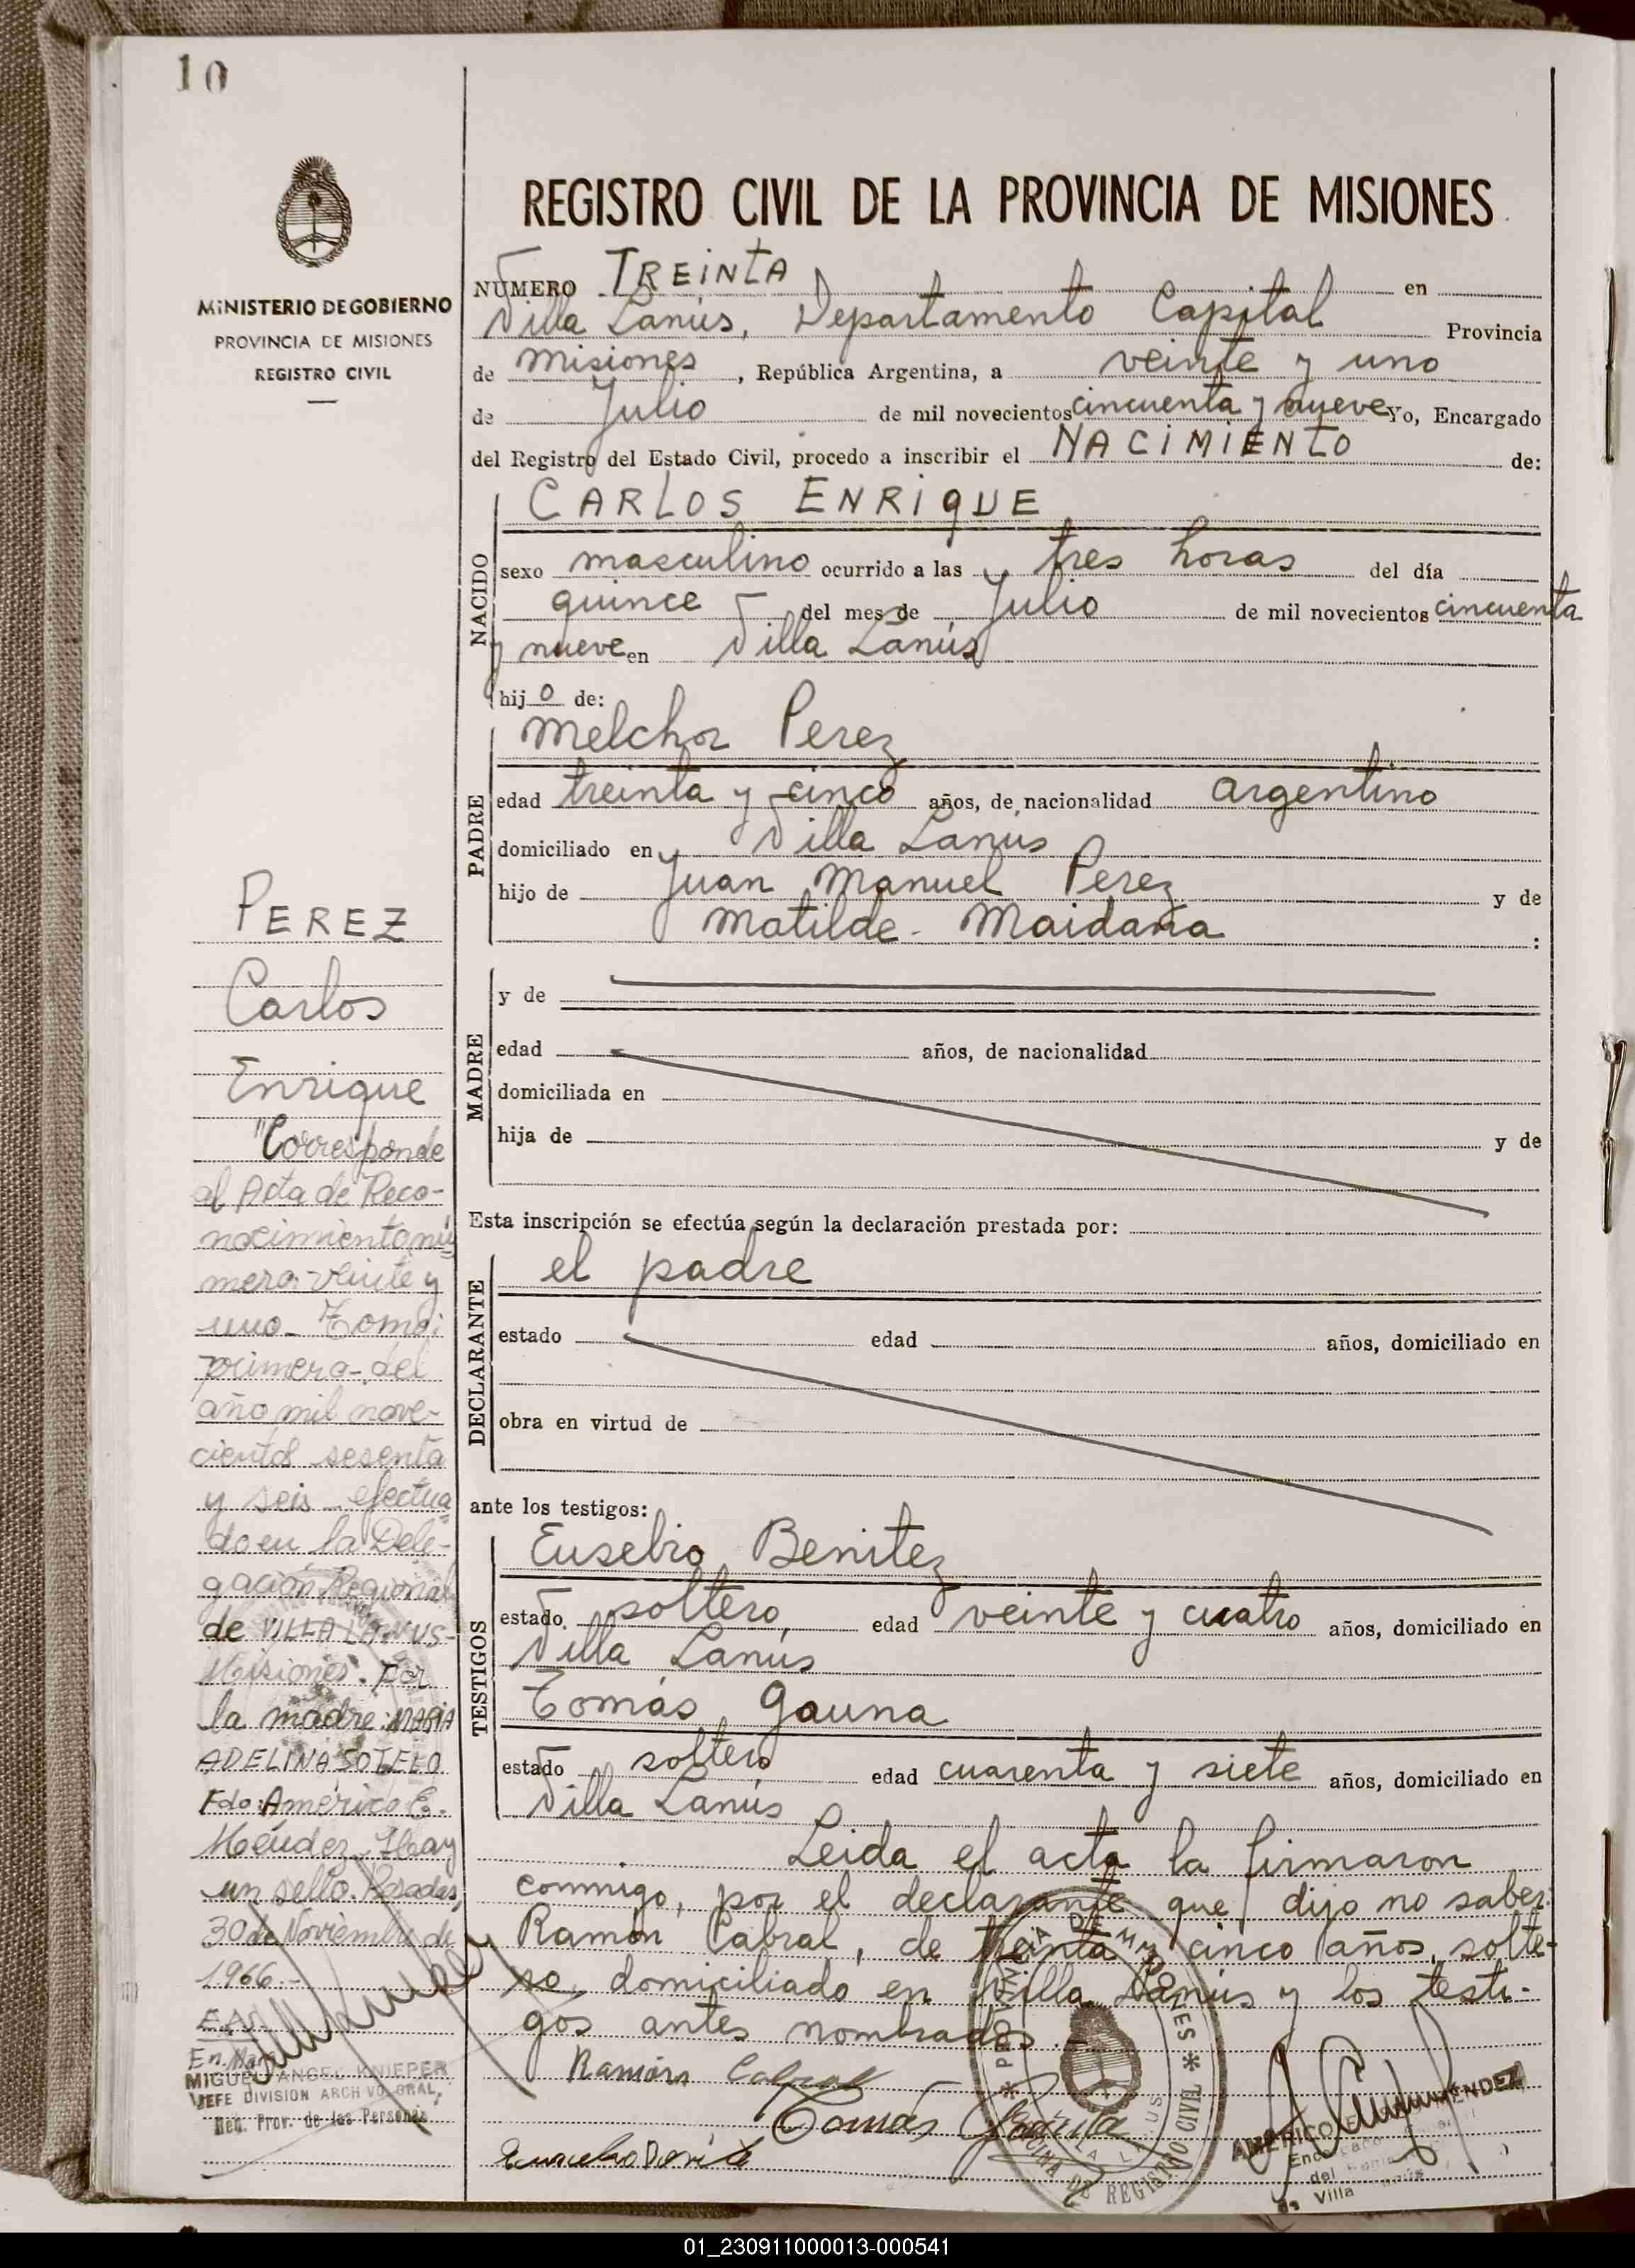 10
MINISTERIO DE GOBIERNO
PROVINCIA DE MISIONES
REGISTRO CIVIL
REGISTRO CIVIL DE LA PROVINCIA DE MISIONES
NUMERO TREINTA en
Villa Lanús, Departamento Capital Provincia
de Misiones, República Argentina, a veinte y uno
de Julio de mil novecientos cincuenta y nueve Yo, Encargado
del Registro del Estado Civil, procedo a inscribir el NACIMIENTO de:
NACIDO
CARLOS ENRIQUE
sexo masculino ocurrido a las tres horas del día
quince del mes de Julio de mil novecientos cincuenta
y nueve en Villa Lanús
hijo de:
PADRE
Melchor Perez
edad treinta y cinco años, de nacionalidad argentino
domiciliado en Villa Lanús
hijo de Juan Manuel Perez y de
Matilde Maidana :
MADRE
y de
edad años, de nacionalidad
domiciliada en
hija de y de
Esta inscripción se efectúa según la declaración prestada por:
DECLARANTE
el padre
estado edad años, domiciliado en
obra en virtud de
ante los testigos:
TESTIGOS
Eusebio Benitez
estado soltero edad veinte y cuatro años, domiciliado en
Villa Lanús
Tomás Gauna
estado soltero edad cuarenta y siete años, domiciliado en
Villa Lanús
Leida el acta la firmaron
conmigo, por el declarante que dijo no saber
Ramón Cabral, de treinta y cinco años, solte-
ro, domiciliado en Villa Lanús y los testi-
gos antes nombrados.-
Ramón Cabral
Tomás Gauna
PROVINCIA DE MISIONES
OFICINA DE REGISTRO CIVIL
AMERICO E. MENDEZ
Encargado
del
de Villa Lanús
PEREZ
Carlos
Enrique
"Corresponde
al Acta de Reco-
nocimiento nú-
mero veinte y
uno- Tomo:
primero- del
año mil nove-
cientos sesenta
y seis efectua-
do en la Dele-
gación Regional
de VILLA LANUS-
Misiones. por
la madre: MARIA
ADELINA SOTELO
Fdo: Américo E.
Méndez. Hay
un sello. Posadas,
30 de Noviembre de
1966.-
MIGUEL ANGEL KNIEPER
JEFE DIVISION ARCHIVO GRAL,
Reg. Prov. de las Personas
01_230911000013-000541